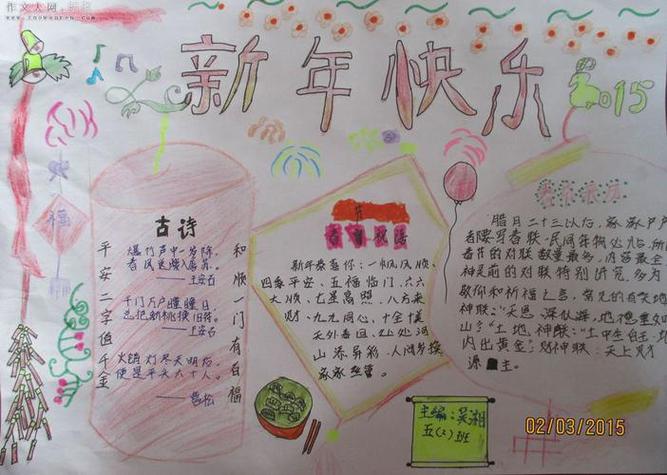 作文大网
新年快乐
2015
福
古诗
平安二字值千金
爆竹声中一岁除,
春风送暖入屠苏。
——王安石
千门万户曈曈日,
总把新桃换旧符。
——王安石
火销灯尽天明后,
便是平头六十人。
和顺一门有百福
新年恭喜你:一帆风顺,
四季平安、五福临门、六六
大顺、七星高照、八方来
财、九九同心、十全十美
天外春回
山添异彩
腊月二十三以后,家家户户
春节的对联数量最多,内容最全
神灵前的对联特别讲究,多为
敬仰和祈福之言,常见的有
神联:“天恩深似海,地德重如
山”;土地神联:“土中生白玉,地
内出黄金”;财神联:“天上财
源主。
主编:吴湘
五(2)班
02/03/2015